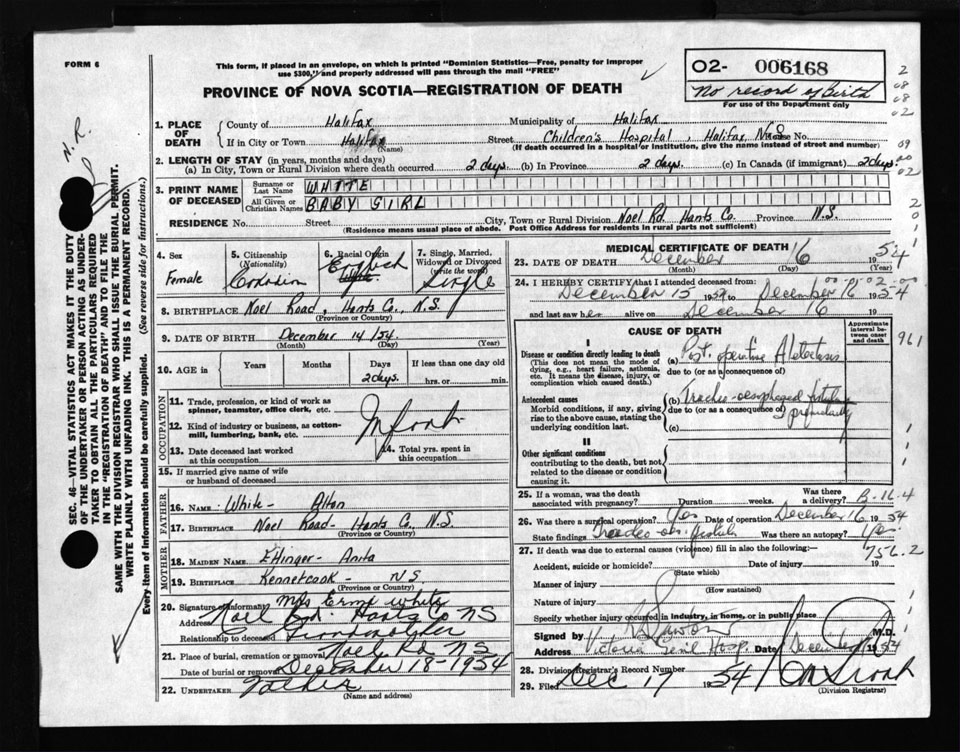 FORM 6
This form, if placed in an envelope, on which is printed "Dominion Statistics—Free, penalty for improper
use $300," and properly addressed will pass through the mail "FREE"
PROVINCE OF NOVA SCOTIA—REGISTRATION OF DEATH
O2- 006168
No record of Birth
For use of the Department only
1. PLACE OF DEATH
County of Halifax Municipality of Halifax
If in City or Town Halifax (Name) Street Children's Hospital, Halifax N.S. House No.
(If death occurred in a hospital or institution, give the name instead of street and number)
2. LENGTH OF STAY (in years, months and days)
(a) In City, Town or Rural Division where death occurred 2 days. (b) In Province 2 days. (c) In Canada (if immigrant) 2 days.
3. PRINT NAME OF DECEASED
Surname or Last Name WHITE
All Given or Christian Names BABY GIRL
RESIDENCE No. Street City, Town or Rural Division Noel Rd. Hants Co. Province N.S.
(Residence means usual place of abode. Post Office Address for residents in rural parts not sufficient)
4. Sex
Female
5. Citizenship (Nationality)
Canadian
6. Racial Origin
English
7. Single, Married, Widowed or Divorced (write the word)
Single
8. BIRTHPLACE Noel Road, Hants Co., N.S.
(Province or Country)
9. DATE OF BIRTH December 14 /54
(Month) (Day) (Year)
10. AGE in Years Months Days 2 days. If less than one day old hrs. or min.
OCCUPATION
11. Trade, profession, or kind of work as spinner, teamster, office clerk, etc.
12. Kind of industry or business, as cotton-mill, lumbering, bank, etc.
Infant
13. Date deceased last worked at this occupation
14. Total yrs. spent in this occupation
15. If married give name of wife or husband of deceased
FATHER
16. NAME: White - Alton
17. BIRTHPLACE Noel Road - Hants Co., N.S.
(Province or Country)
MOTHER
18. MAIDEN NAME Ettinger - Anita
19. BIRTHPLACE Kennetcook - N.S.
(Province or Country)
20. Signature of informant Mrs White
Address Noel Rd. Hants Co NS
Relationship to deceased Grandmother
21. Place of burial, cremation or removal Noel Rd NS
Date of burial or removal December 18-1954
22. UNDERTAKER Father
(Name and address)
MEDICAL CERTIFICATE OF DEATH
23. DATE OF DEATH December 16 1954
(Month) (Day) (Year)
24. I HEREBY CERTIFY that I attended deceased from:
December 15 1954 to December 16 1954
and last saw her alive on December 16 19
CAUSE OF DEATH
Approximate interval between onset and death
I
Disease or condition directly leading to death
(This does not mean the mode of dying, e.g., heart failure, asthenia, etc. It means the disease, injury, or complication which caused death.)
(a) Post operative Atelectasis
due to (or as a consequence of)
Antecedent causes
Morbid conditions, if any, giving rise to the above cause, stating the underlying condition last.
(b) Tracheo-oesophageal fistula
due to (or as a consequence of)
(c)
II
Other significant conditions
contributing to the death, but not related to the disease or condition causing it.
25. If a woman, was the death associated with pregnancy? Duration weeks. Was there a delivery? B-16.4
26. Was there a surgical operation? Yes Date of operation December 16 1954
State findings Tracheo-oes. fistula Was there an autopsy? Yes
27. If death was due to external causes (violence) fill in also the following:— 756.2
Accident, suicide or homicide? (State which) Date of injury 19
Manner of injury (How sustained)
Nature of injury
Specify whether injury occurred in industry, in home, or in public place
Signed by M.D.
Address Victoria Genl. Hosp. Date December 1954
28. Division Registrar's Record Number
29. Filed Dec 17 1954
(Division Registrar)
961
SEC. 46—VITAL STATISTICS ACT MAKES IT THE DUTY
OF THE UNDERTAKER OR PERSON ACTING AS UNDER-
TAKER TO OBTAIN ALL THE PARTICULARS REQUIRED
IN THE "REGISTRATION OF DEATH" AND TO FILE THE
SAME WITH THE DIVISION REGISTRAR WHO SHALL ISSUE THE BURIAL PERMIT.
WRITE PLAINLY WITH UNFADING INK. THIS IS A PERMANENT RECORD.
Every item of information should be carefully supplied. (See reverse side for instructions.)